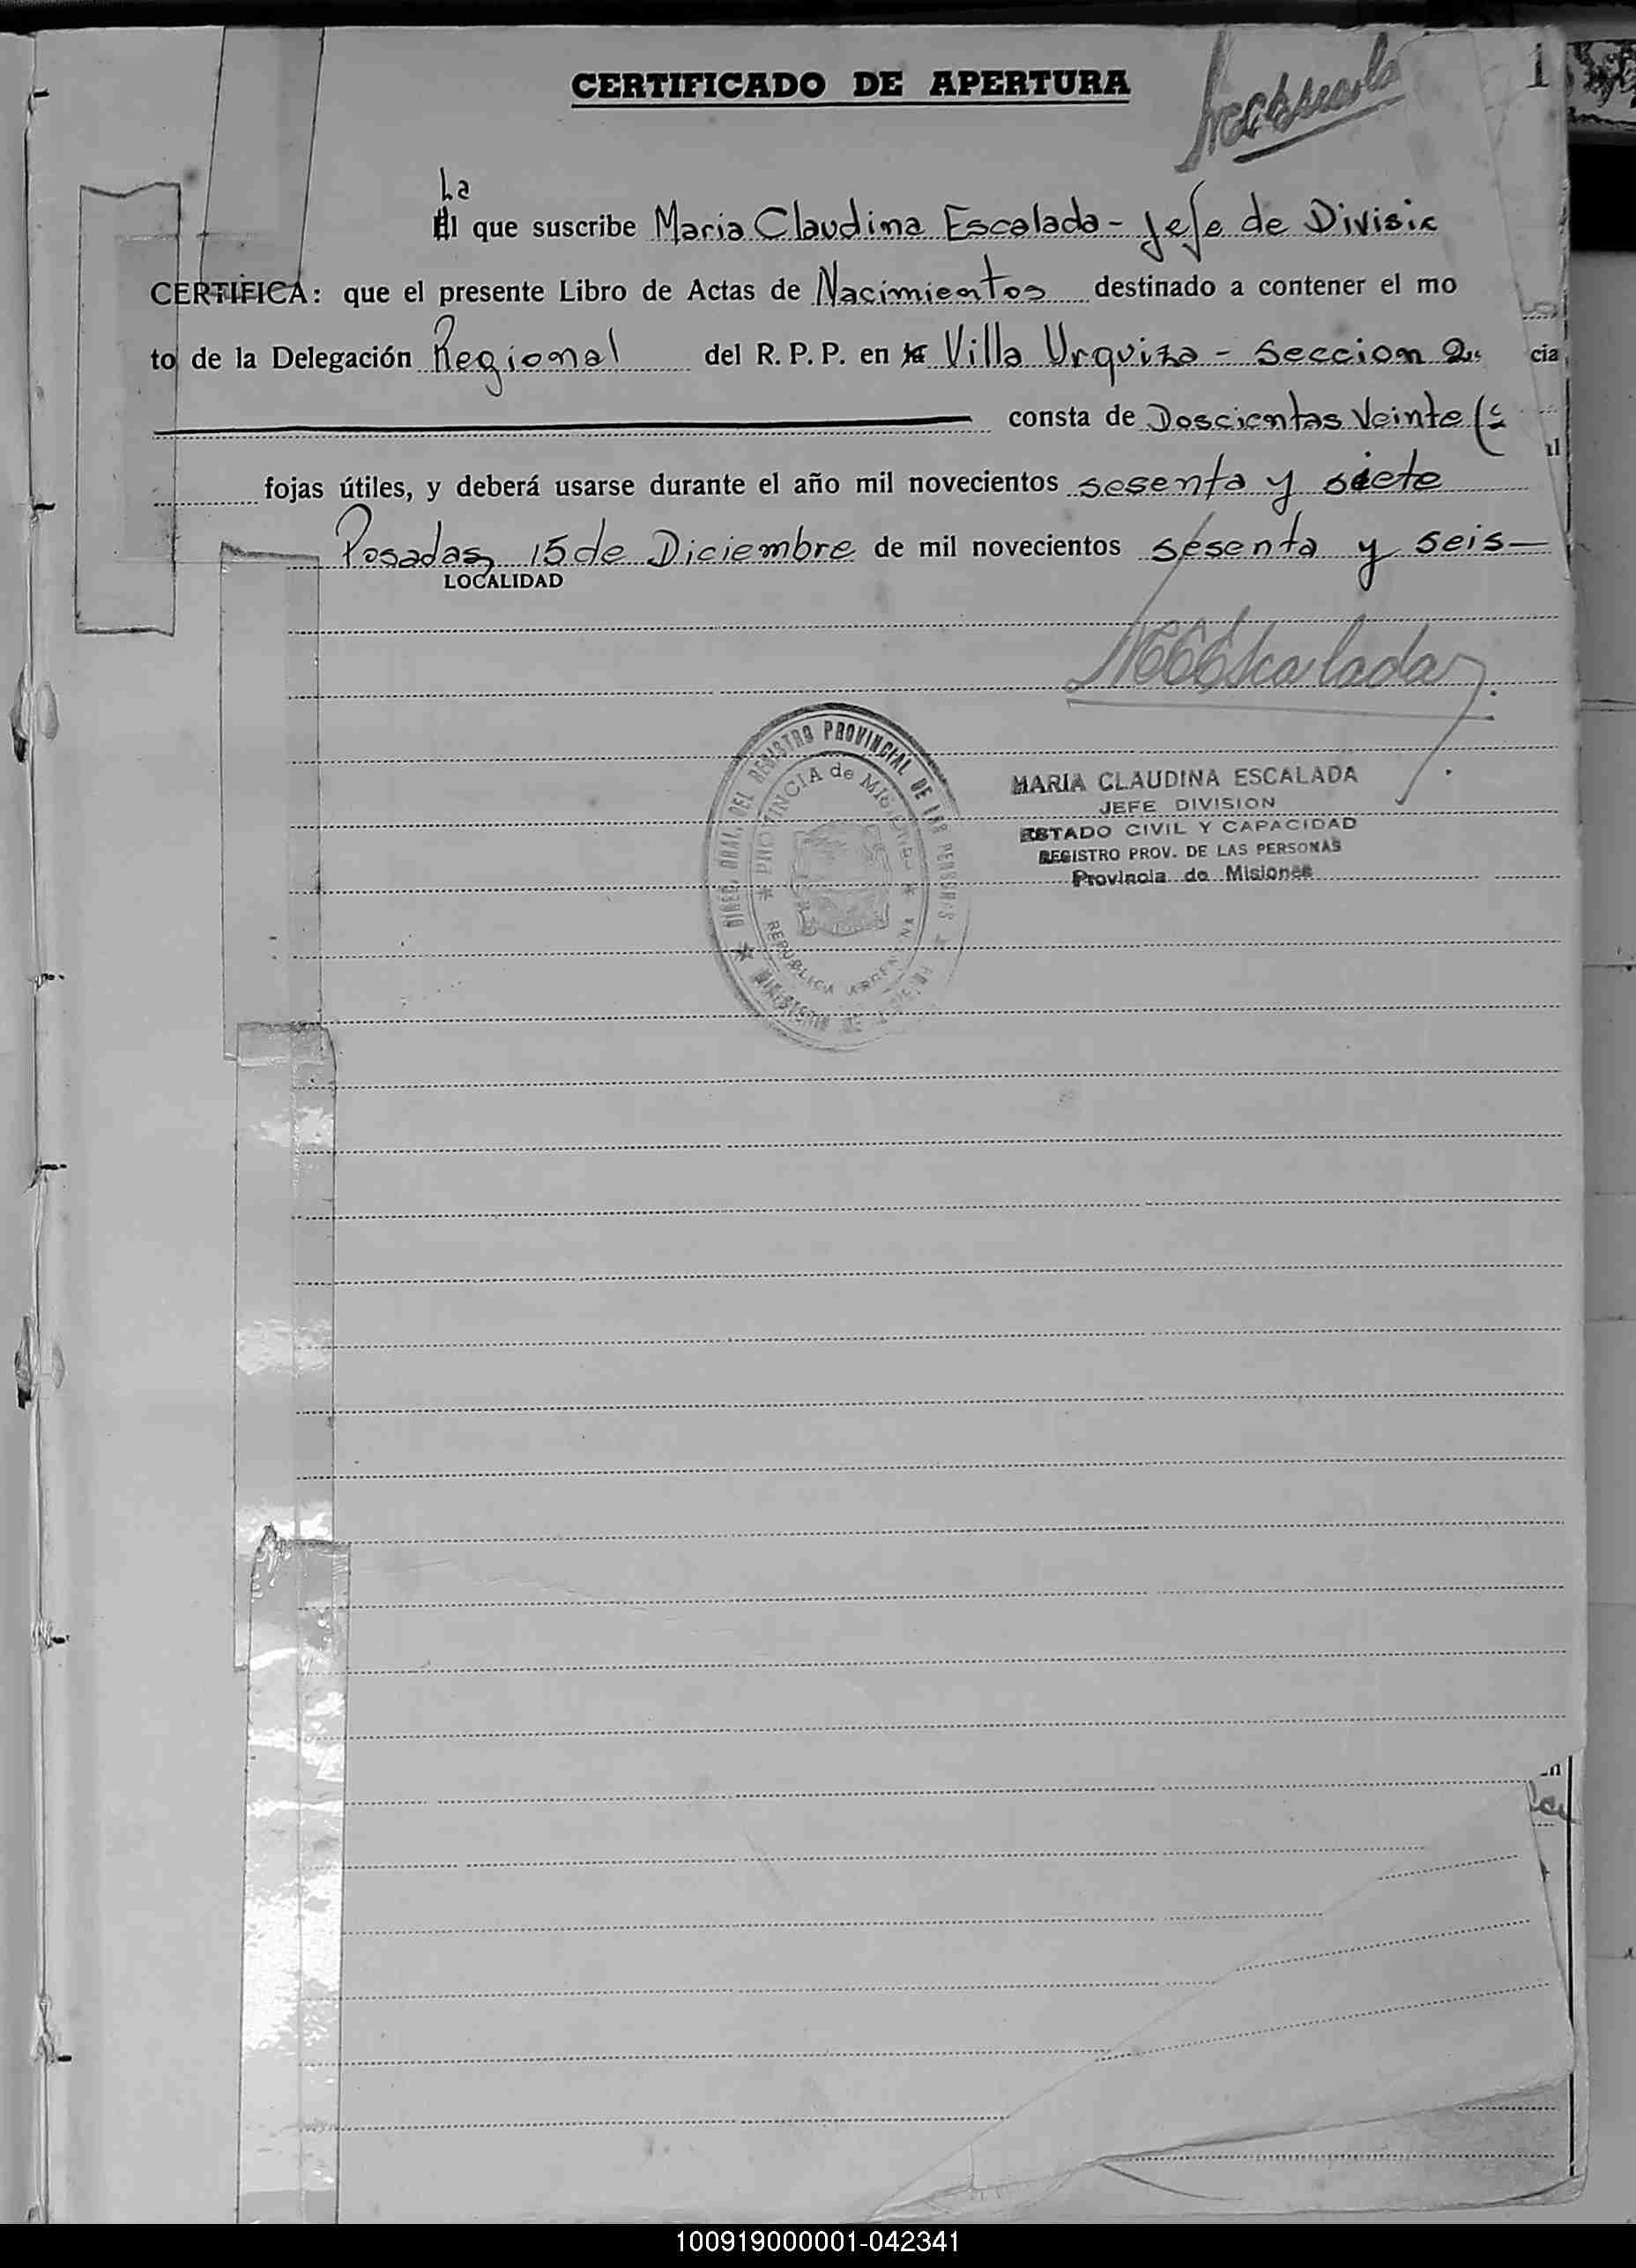 CERTIFICADO DE APERTURA
1
La
El que suscribe Maria Claudina Escalada - Jefe de Divisi
CERTIFICA: que el presente Libro de Actas de Nacimientos destinado a contener el mo
to de la Delegación Regional del R. P. P. en la Villa Urquiza - Seccion 2
cia
consta de Doscientas Veinte (
fojas útiles, y deberá usarse durante el año mil novecientos sesenta y siete
Posadas, 15 de Diciembre de mil novecientos sesenta y seis
LOCALIDAD
MCEscalada
DIREC. GRAL. DEL REGISTRO PROVINCIAL DE LAS PERSONAS
PROVINCIA de MISIONES
REPUBLICA ARGENTINA
MINISTERIO DE
MARIA CLAUDINA ESCALADA
JEFE DIVISION
ESTADO CIVIL Y CAPACIDAD
REGISTRO PROV. DE LAS PERSONAS
Provincia de Misiones
100919000001-042341